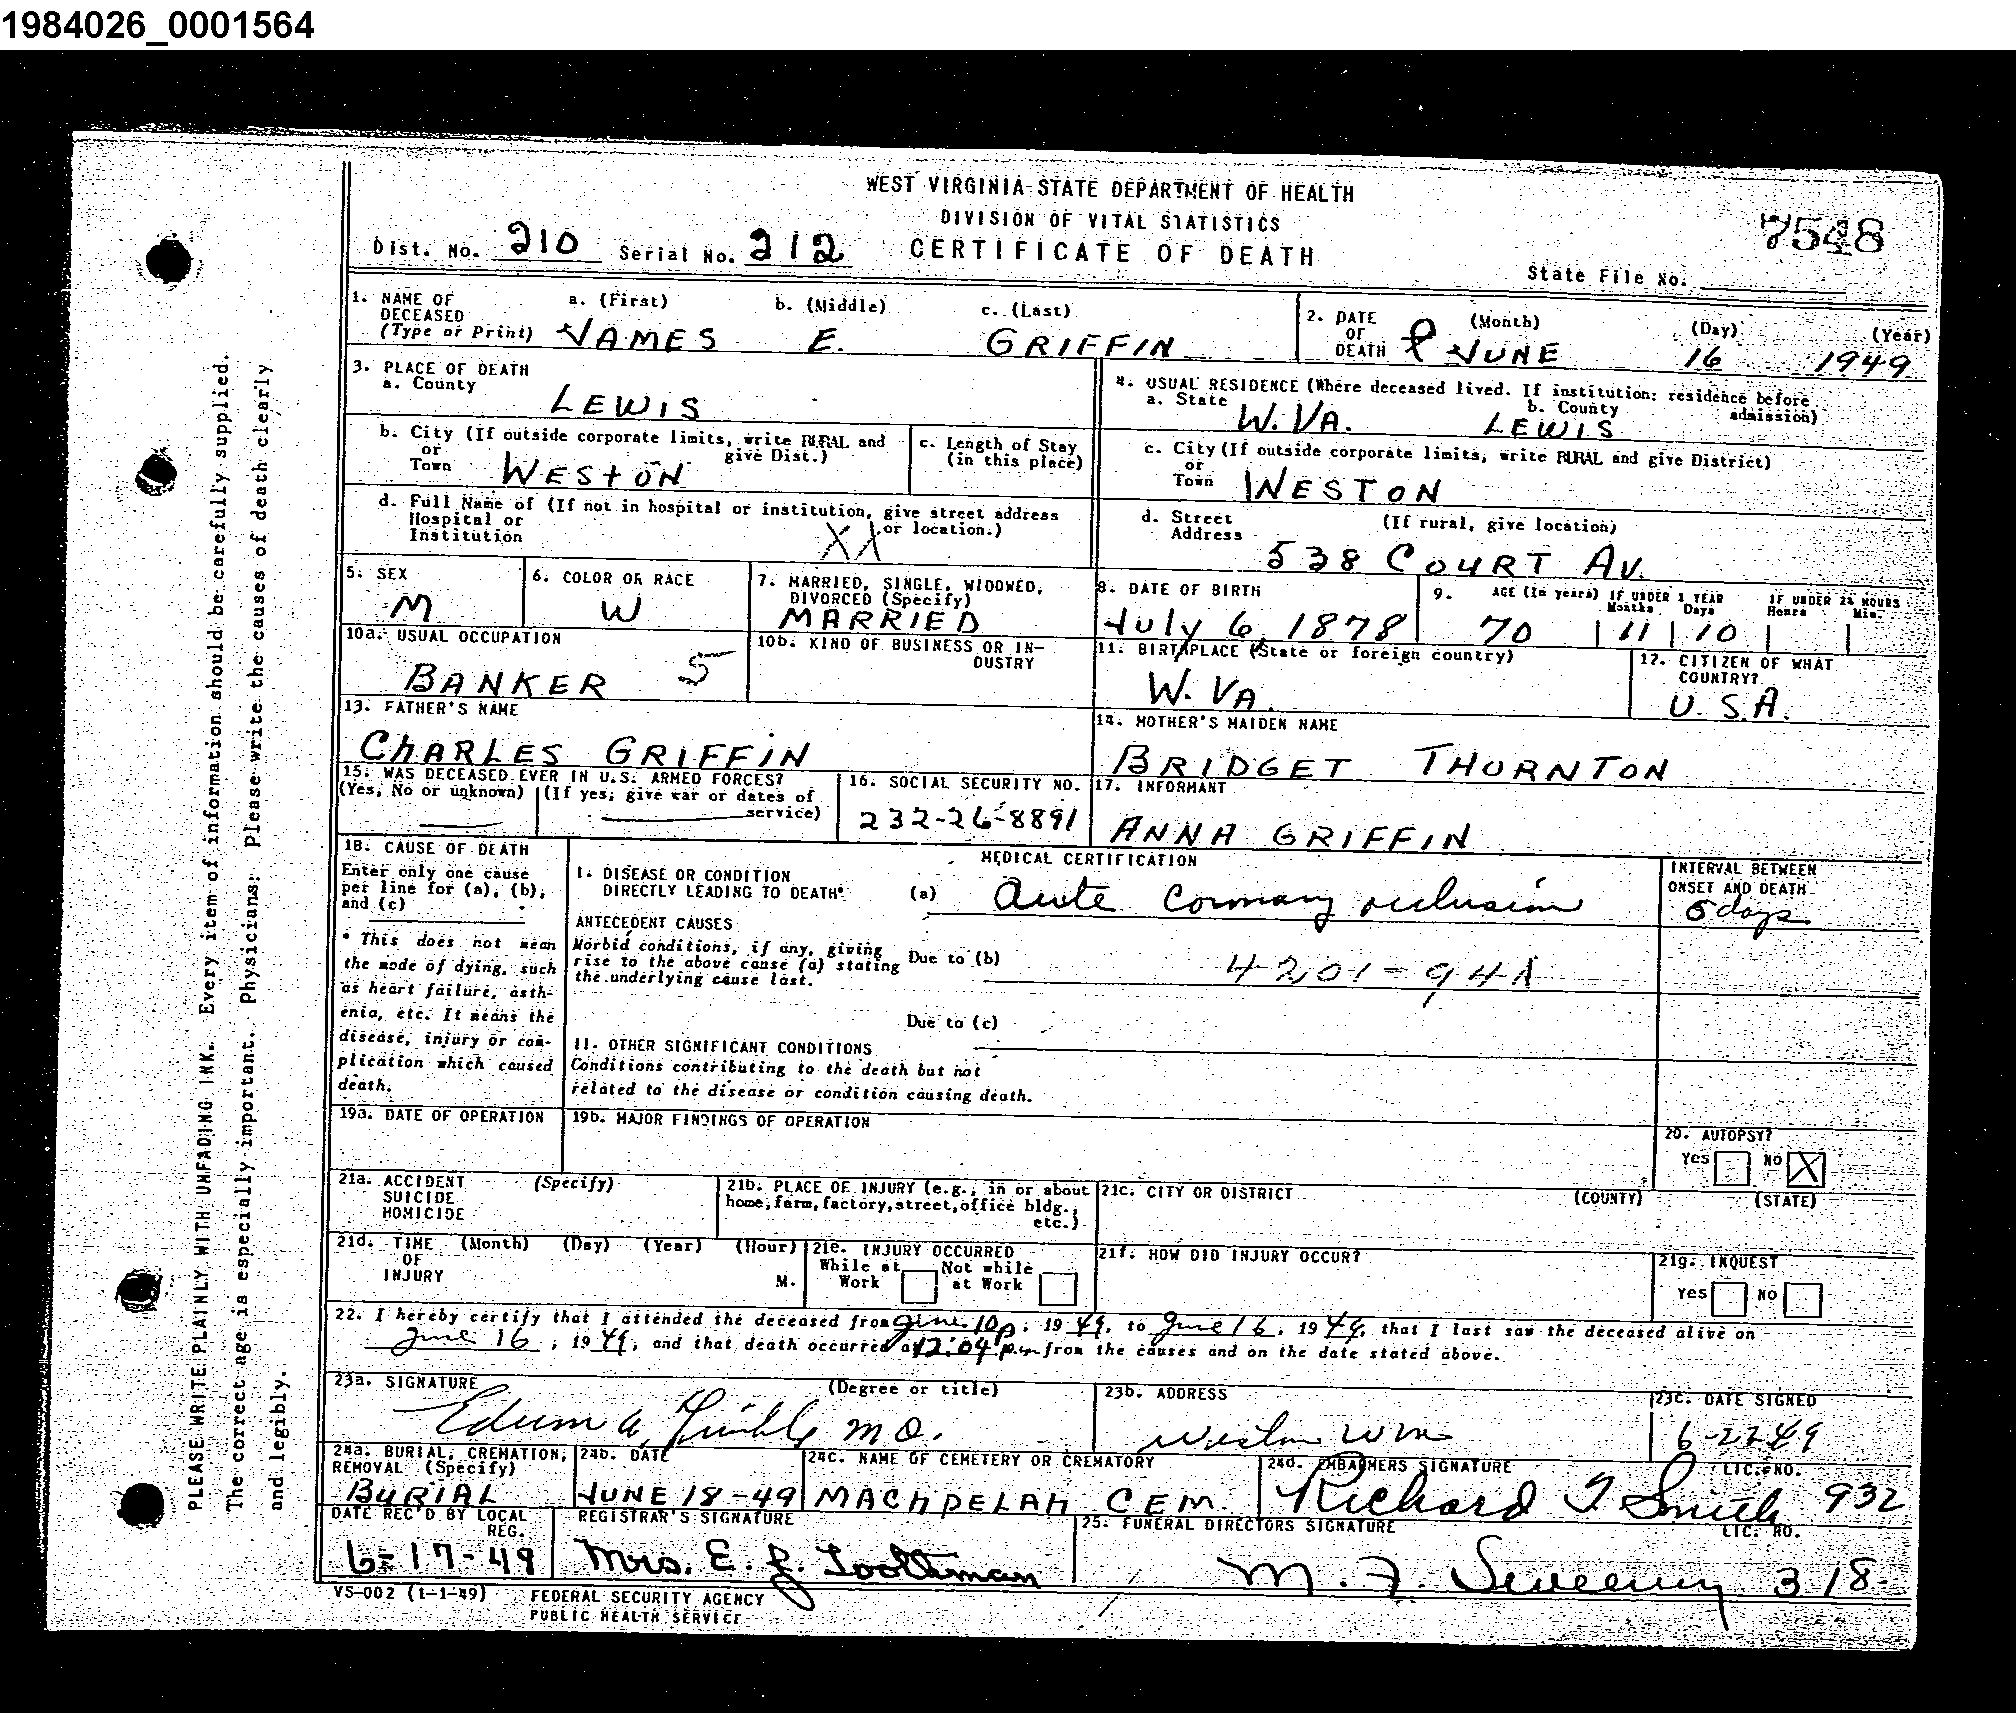 1984026_0001564
WEST VIRGINIA STATE DEPARTMENT OF HEALTH
DIVISION OF VITAL STATISTICS
7548
Dist. No. 210 Serial No. 212 CERTIFICATE OF DEATH
State File No.
1. NAME OF DECEASED (Type or Print) a. (First) b. (Middle) c. (Last)
JAMES E. GRIFFIN
2. DATE OF DEATH (Month) (Day) (Year)
JUNE 16 1949
3. PLACE OF DEATH
a. County
LEWIS
4. USUAL RESIDENCE (Where deceased lived. If institution: residence before admission)
a. State W. VA. b. County LEWIS
b. City (If outside corporate limits, write RURAL and give Dist.)
or Town WESTON
c. Length of Stay (in this place)
c. City (If outside corporate limits, write RURAL and give District)
or Town WESTON
d. Full Name of (If not in hospital or institution, give street address or location.)
Hospital or Institution XX
d. Street Address (If rural, give location)
538 COURT AV.
5. SEX
M
6. COLOR OR RACE
W
7. MARRIED, SINGLE, WIDOWED, DIVORCED (Specify)
MARRIED
8. DATE OF BIRTH
July 6, 1878
9. AGE (In years) IF UNDER 1 YEAR Months Days IF UNDER 24 HOURS Hours Min.
70 11 10
10a. USUAL OCCUPATION
BANKER 5
10b. KIND OF BUSINESS OR INDUSTRY
11. BIRTHPLACE (State or foreign country)
W. VA.
12. CITIZEN OF WHAT COUNTRY?
U.S.A.
13. FATHER'S NAME
CHARLES GRIFFIN
14. MOTHER'S MAIDEN NAME
BRIDGET THORNTON
15. WAS DECEASED EVER IN U.S. ARMED FORCES?
(Yes, No or unknown) (If yes, give war or dates of service)
16. SOCIAL SECURITY NO.
232-26-8891
17. INFORMANT
ANNA GRIFFIN
18. CAUSE OF DEATH
Enter only one cause per line for (a), (b), and (c)
* This does not mean the mode of dying, such as heart failure, asthenia, etc. It means the disease, injury or complication which caused death.
MEDICAL CERTIFICATION
I. DISEASE OR CONDITION DIRECTLY LEADING TO DEATH* (a) acute coronary occlusion
INTERVAL BETWEEN ONSET AND DEATH
5 days
ANTECEDENT CAUSES
Morbid conditions, if any, giving rise to the above cause (a) stating the underlying cause last.
Due to (b)
Due to (c)
II. OTHER SIGNIFICANT CONDITIONS
Conditions contributing to the death but not related to the disease or condition causing death.
19a. DATE OF OPERATION
19b. MAJOR FINDINGS OF OPERATION
20. AUTOPSY?
Yes No X
21a. ACCIDENT SUICIDE HOMICIDE (Specify)
21b. PLACE OF INJURY (e.g., in or about home, farm, factory, street, office bldg., etc.)
21c. CITY OR DISTRICT (COUNTY) (STATE)
21d. TIME OF INJURY (Month) (Day) (Year) (Hour) M.
21e. INJURY OCCURRED
While at Work Not while at Work
21f. HOW DID INJURY OCCUR?
21g. INQUEST
Yes No
22. I hereby certify that I attended the deceased from June 10, 1949, to June 16, 1949, that I last saw the deceased alive on
June 16, 1949, and that death occurred at 12:04 p.m. from the causes and on the date stated above.
23a. SIGNATURE (Degree or title)
M.D.
23b. ADDRESS
Weston W Va
23c. DATE SIGNED
24a. BURIAL, CREMATION, REMOVAL (Specify)
BURIAL
24b. DATE
JUNE 18-49
24c. NAME OF CEMETERY OR CREMATORY
MACHPELAH CEM.
24d. EMBALMERS SIGNATURE LIC. NO.
Richard T Smith 932
DATE REC'D BY LOCAL REG.
6-17-49
REGISTRAR'S SIGNATURE
Mrs. E. J. Toothman
25. FUNERAL DIRECTORS SIGNATURE LIC. NO.
M. F. Sweeney 318
VS-002 (1-1-49) FEDERAL SECURITY AGENCY
PUBLIC HEALTH SERVICE
PLEASE WRITE PLAINLY WITH UNFADING INK. Every item of information should be carefully supplied.
The correct age is especially important. Physicians: Please write the causes of death clearly
and legibly.